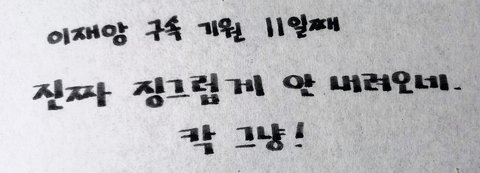 이재앙 구속 기원 11일째
진짜 징그럽게 안 내려오네.
칵 그냥!